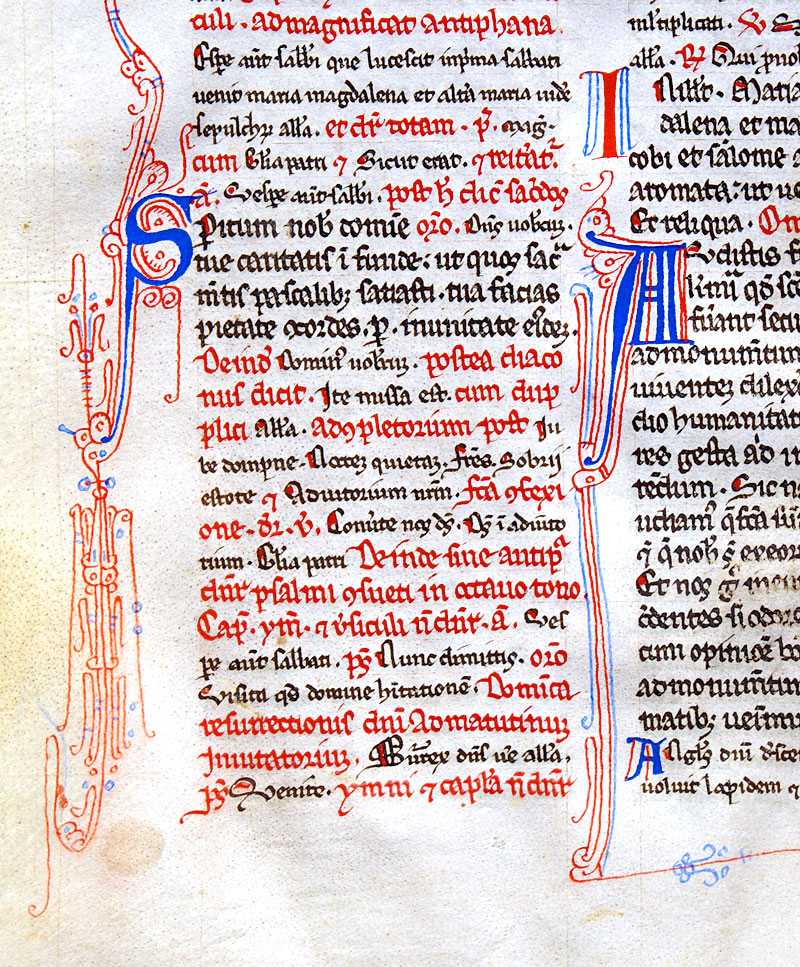 culi. ad magnificat antiphana.
Vespe aut sabbi que lucescit in pma sabbati
venit maria magdalena et alta maria vide
sepulchrum alla. et dr totam. p. mag.
cum Glia patri ⁊ Sicut erat. ⁊ reitat.
a. Vespe aut sabbi. post h dic sacdos
Spiritum nob domie oro. Dns vobcuz.
tue caritatis i funde: ut quos sac
mtis pascalibz satiasti. tua facias
pietate 9cordes. p. in unitate eiusdez.
Deind Dominus vobcuz. postea diaco
nus dicit. Ite missa est. cum dup
plici alla. ad 9pletorium post Iu
be dompne. Noctez quietaz. frēs. Sobrii
estote ⁊ Adiutorium nrm. fca 9fexi
one. dr. v. Conute nos ds. Ds i adiuto
rium. Glia patri Deinde sine antipa
dnr psalmi 9sueti in octavo tono.
Cap. ym. ⁊ vsiculi n dnr. a. Ves
pe aut sabbati. ps Nunc dimittis. oro
Visita qs domine hitatione. Domica
resurrectionis dni Ad matutinuz
Invitatoriuz. Surrex dns vere alla.
ps Venite. ymni ⁊ capla n dnr
mltiplicati.
alla. Qui p nob
In illr. Maria
dalena et ma
cobi et salome a
aromata: ut ve
Et reliqua. Om
Audistis f
limi qd sc
fuant secu
ad monumtum
viventez dilexe
dio humanitat
res gesta ad i
tectum. Sic n
Et nos g in eum
cdentes si odore
cum opinioe bo
ad monumtum
matibz veimu
Anglus dni desce
volvit lapidem ⁊